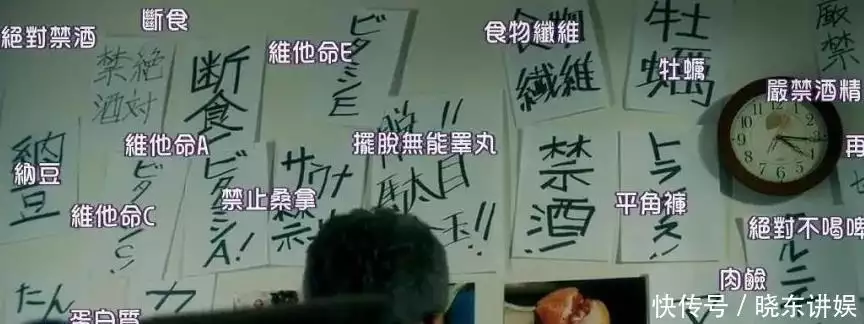 絕對禁酒
斷食
維他命E
食物纖維
牡蠣
嚴禁酒精
納豆
維他命A
維他命C
禁止桑拿
擺脫無能睪丸
平角褲
再
絕對不喝啤
肉鹼
蛋白質
絶対
禁酒
断食
ビタミンE
食物
繊維
牡蠣
厳禁
納豆
ビタミンC!
ビタミンA!
サウナ
禁
脱
駄目
玉!!
禁酒!
トランクス!
ルニ
たん
カ
12
1
2
3
4
5
6
7
8
9
10
11
快传号 / 晓东讲娱